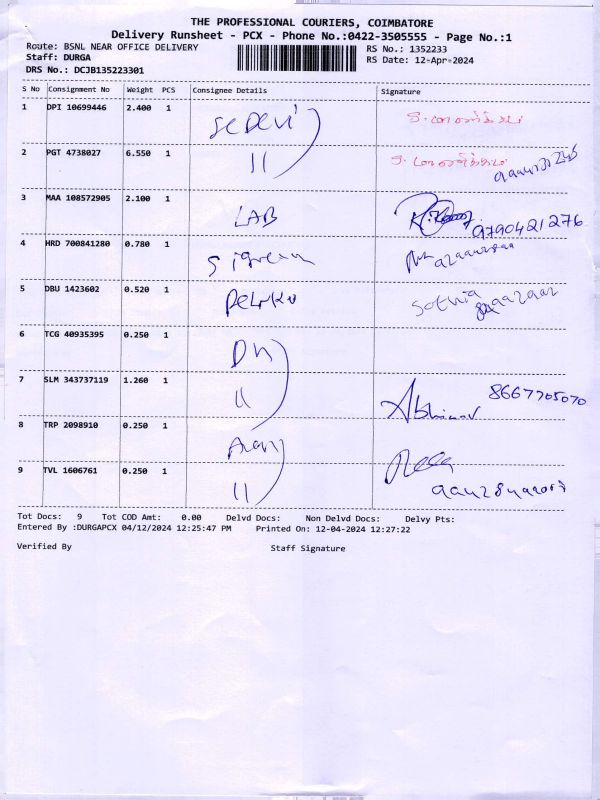 THE PROFESSIONAL COURIERS, COIMBATORE
Delivery Runsheet - PCX - Phone No.:0422-3505555 - Page No.:1
Route: BSNL NEAR OFFICE DELIVERY RS No.: 1352233
Staff: DURGA RS Date: 12-Apr-2024
DRS No.: DCJB135223301
S No Consignment No Weight PCS Consignee Details Signature
1 DPI 10699446 2.400 1
2 PGT 4738027 6.550 1 11
3 MAA 108572905 2.100 1 LAB 9790421276
4 HRD 700841280 0.780 1
5 DBU 1423602 0.520 1
6 TCG 40935395 0.250 1
7 SLM 343737119 1.260 1 11 Abhinav 8667705070
8 TRP 2098910 0.250 1
9 TVL 1606761 0.250 1 11
Tot Docs: 9 Tot COD Amt: 0.00 Delvd Docs: Non Delvd Docs: Delvy Pts:
Entered By :DURGAPCX 04/12/2024 12:25:47 PM Printed On: 12-04-2024 12:27:22
Verified By Staff Signature